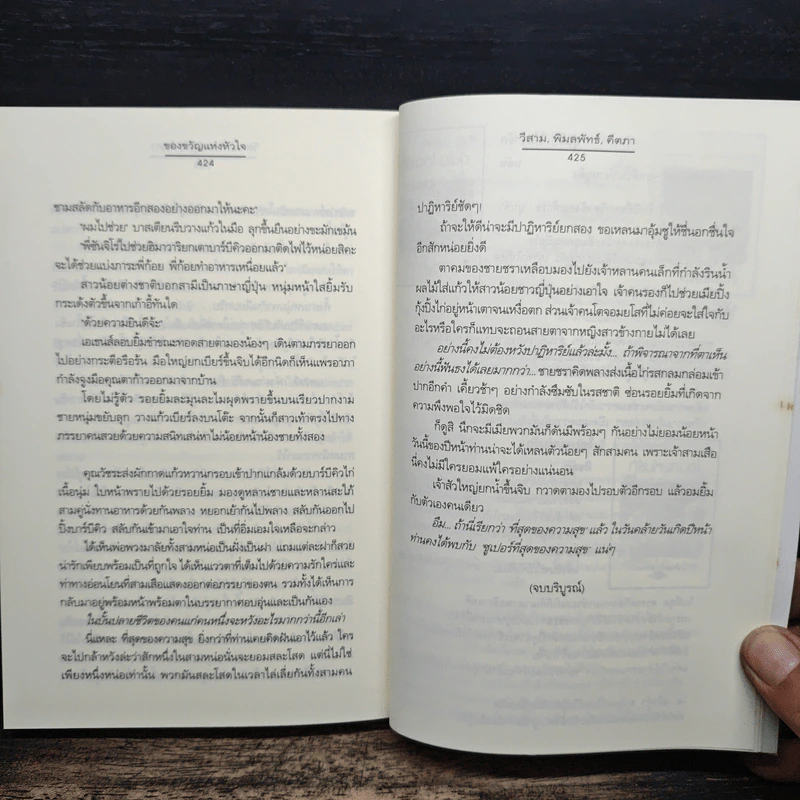 ของขวัญแห่งหัวใจ
424
ชามสลัดกับอาหารอีกสองอย่างออกมาให้นะคะ"
"ผมไปช่วย" บาสเตียนรีบวางแก้วในมือ ลุกขึ้นยืนอย่างขะมักเขม้น
"พี่ชันจิโร่ไปช่วยฮิมาวาริยกเตาบาร์บีคิวออกมาติดไฟไว้หน่อยสิคะ
จะได้ช่วยแบ่งภาระพี่ก้อย พี่ก้อยทำอาหารเหนื่อยแล้ว"
สาวน้อยต่างชาติบอกสามีเป็นภาษาญี่ปุ่น หนุ่มหน้าใสยิ้มรับ
กระเด้งตัวขึ้นจากเก้าอี้ทันใด
"ด้วยความยินดีจ้ะ"
เอเซนส์ลอบยิ้มขำขณะทอดสายตามองน้องๆ เดินตามภรรยาออก
ไปอย่างกระตือรือร้น มือใหญ่ยกเบียร์ขึ้นจิบได้อีกนิดก็เห็นแพรอาภา
กำลังจูงมือคุณตาก้าวออกมาจากบ้าน
โดยไม่รู้ตัว รอยยิ้มละมุนละไมผุดพรายขึ้นบนเรียวปากงาม
ชายหนุ่มขยับลุก วางแก้วเบียร์ลงบนโต๊ะ จากนั้นก็สาวเท้าตรงไปทาง
ภรรยาคนสวยด้วยความสนิทเสน่หาไม่น้อยหน้าน้องชายทั้งสอง
คุณวัชระส่งผักกาดแก้วหวานกรอบเข้าปากแกล้มด้วยบาร์บีคิวไก่
เนื้อนุ่ม ใบหน้าพรายไปด้วยรอยยิ้ม มองดูหลานชายและหลานสะใภ้
สามคู่นั่งทานอาหารด้วยกันพลาง หยอกเย้ากันไปพลาง สลับกันออกไป
ปิ้งบาร์บีคิว สลับกันเข้ามาเอาใจท่าน เป็นที่อิ่มเอมใจเหลือจะกล่าว
ได้เห็นพ่อพวงมาลัยทั้งสามหน่อเป็นฝั่งเป็นฝา แถมแต่ละฝาก็สวย
น่ารักเพียบพร้อมเป็นที่ถูกใจ ได้เห็นแววตาที่เต็มไปด้วยความรักใคร่และ
ท่าทางอ่อนโยนที่สามเสือแสดงออกต่อภรรยาของตน รวมทั้งได้เห็นการ
กลับมาอยู่พร้อมหน้าพร้อมตาในบรรยากาศอบอุ่นและเป็นกันเอง
ในบั้นปลายชีวิตของคนแก่คนหนึ่งจะหวังอะไรมากกว่านี้อีกเล่า
นี่แหละ ที่สุดของความสุข ยิ่งกว่าที่ท่านเคยคิดฝันเอาไว้แล้ว ใคร
จะไปกล้าหวังล่ะว่าสักหนึ่งในสามหน่อนั่นจะยอมสละโสด แต่นี่ไม่ใช่
เพียงหนึ่งหน่อเท่านั้น พวกมันสละโสดในเวลาไล่เลี่ยกันทั้งสามคน
วีสาม, พิมลพัทธ์, คีตภา
425
ปาฏิหาริย์ชัดๆ!
ถ้าจะให้ดีน่าจะมีปาฏิหาริย์ยกสอง ขอเหลนมาอุ้มชูให้ชื่นอกชื่นใจ
อีกสักหน่อยยิ่งดี
ตาคมของชายชราเหลือบมองไปยังเจ้าหลานคนเล็กที่กำลังรินน้ำ
ผลไม้ใส่แก้วให้สาวน้อยชาวญี่ปุ่นอย่างเอาใจ เจ้าคนรองก็ไปช่วยเมียปิ้ง
กุ้งปิ้งไก่อยู่หน้าเตาจนเหงื่อตก ส่วนเจ้าคนโตจอมยโสที่ไม่ค่อยจะใส่ใจกับ
อะไรหรือใครก็แทบจะถอนสายตาจากหญิงสาวข้างกายไม่ได้เลย
อย่างนี้คงไม่ต้องหวังปาฏิหาริย์แล้วละมั้ง... ถ้าพิจารณาจากที่ตาเห็น
อย่างนี้ฟันธงได้เลยมากกว่า... ชายชราคิดพลางส่งเนื้อไก่รสกลมกล่อมเข้า
ปากอีกคำ เคี้ยวช้าๆ อย่างกำลังซึมซับในรสชาติ ซ่อนรอยยิ้มที่เกิดจาก
ความพึงพอใจไว้มิดชิด
ก็ดูสิ นึกจะมีเมียพวกมันก็ดันมีพร้อมๆ กันอย่างไม่ยอมน้อยหน้า
วันนี้ของปีหน้าท่านน่าจะได้เหลนตัวน้อยๆ สักสามคน เพราะเจ้าสามเสือ
นี่คงไม่มีใครยอมแพ้ใครอย่างแน่นอน
เจ้าสัวใหญ่ยกน้ำขึ้นจิบ กวาดตามองไปรอบตัวอีกรอบ แล้วอมยิ้ม
กับตัวเองคนเดียว
อืม... ถ้านี่เรียกว่า 'ที่สุดของความสุข' แล้ว ในวันคล้ายวันเกิดปีหน้า
ท่านคงได้พบกับ 'ซูเปอร์ที่สุดของความสุข' แน่ๆ
(จบบริบูรณ์)